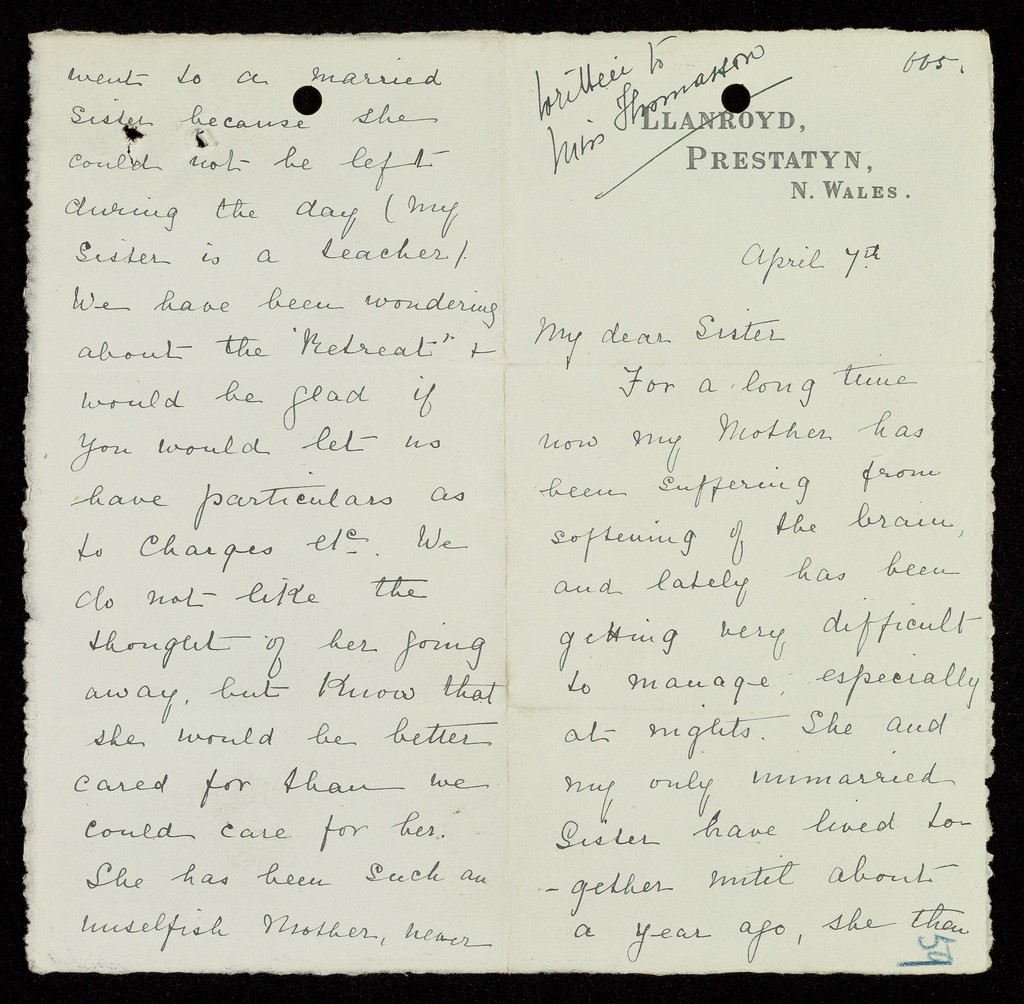 written to
Miss Thomasson
665.
LLANROYD,
PRESTATYN,
N. WALES.
April 7th
My dear Sister
For a long time
now my Mother has
been suffering from
softening of the brain,
and lately has been
getting very difficult
to manage, especially
at nights. She and
my only unmarried
Sister have lived to-
-gether until about
a year ago, she then
59
went to a married
Sister because she
could not be left
during the day (My
Sister is a teacher).
We have been wondering
about the "Retreat" &
would be glad if
you would let us
have particulars as
to charges etc. We
do not like the
thought of her going
away, but know that
she would be better
cared for than we
could care for her.
She has been such an
unselfish Mother, never